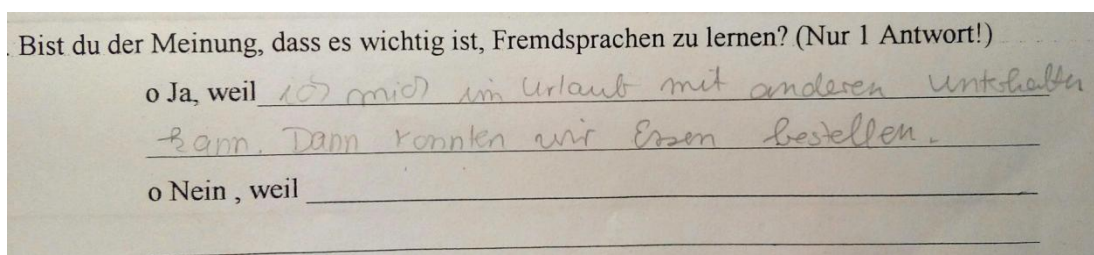 . Bist du der Meinung, dass es wichtig ist, Fremdsprachen zu lernen? (Nur 1 Antwort!)
o Ja, weil ich mich im Urlaub mit anderen unterhalten
kann. Dann konnten wir Essen bestellen.
o Nein , weil